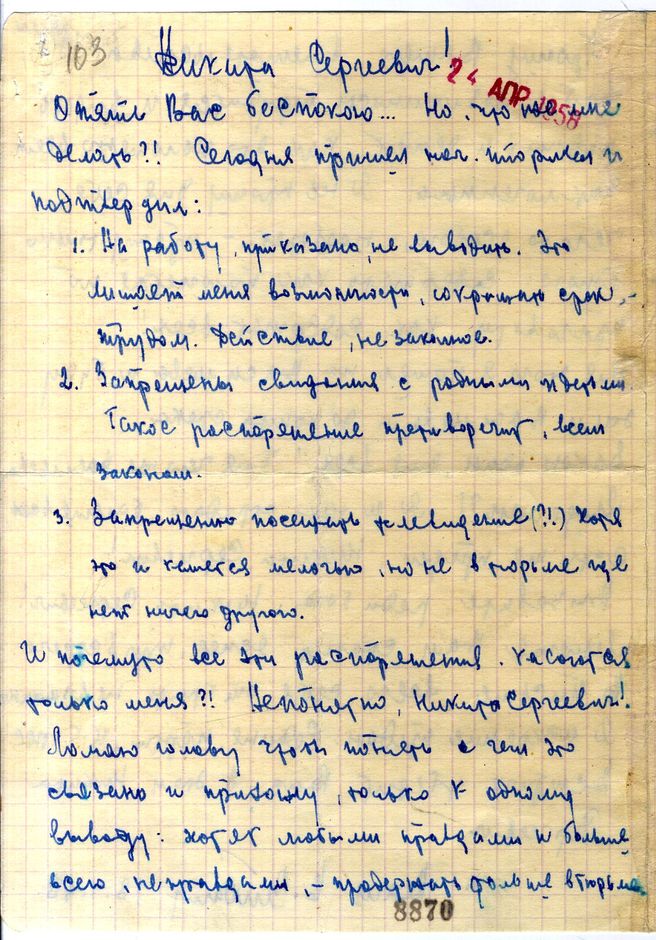 103
Никита Сергеевич!
24 АПР 1958
Опять Вас беспокою... Но, что же мне
делать?! Сегодня пришел нач. тюрьмы и
подтвердил:
1. На работу, приказано, не выводить. Это
лишает меня возможности, сокращать срок, -
трудом. Действие, не законное.
2. Запрещены свидания с родными и детьми.
Такое распоряжение противоречит, всем
законам.
3. Запрещенно посещать телевидение (?!.) Хотя
это и кажется мелочью, но не в тюрьме где
нет ничего другого.
И почемуто все эти распоряжения, касаются
только меня?! Непонятно, Никита Сергеевич!
Ломаю голову чтобы понять с чем это
связано и прихожу, только к одному
выводу: хотят любыми правдами и больше
всего, неправдами, - продержать дольше в тюрьме.
8870